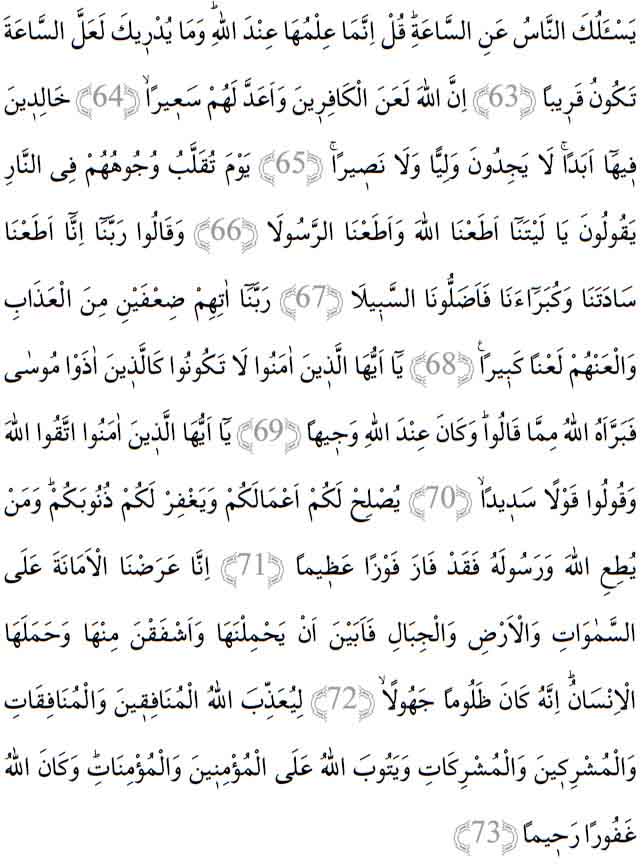 يَسْـَٔلُكَ النَّاسُ عَنِ السَّاعَةِۜ قُلْ اِنَّمَا عِلْمُهَا عِنْدَ اللّٰهِۜ وَمَا يُدْر۪يكَ لَعَلَّ السَّاعَةَ
تَكُونُ قَر۪يبًا ﴿63﴾ اِنَّ اللّٰهَ لَعَنَ الْكَافِر۪ينَ وَاَعَدَّ لَهُمْ سَع۪يرًاۙ ﴿64﴾ خَالِد۪ينَ
ف۪يهَٓا اَبَدًاۚ لَا يَجِدُونَ وَلِيًّا وَلَا نَص۪يرًاۚ ﴿65﴾ يَوْمَ تُقَلَّبُ وُجُوهُهُمْ فِي النَّارِ
يَقُولُونَ يَا لَيْتَنَٓا اَطَعْنَا اللّٰهَ وَاَطَعْنَا الرَّسُولَا ﴿66﴾ وَقَالُوا رَبَّنَٓا اِنَّٓا اَطَعْنَا
سَادَتَنَا وَكُبَرَٓاءَنَا فَاَضَلُّونَا السَّب۪يلَا ﴿67﴾ رَبَّنَٓا اٰتِهِمْ ضِعْفَيْنِ مِنَ الْعَذَابِ
وَالْعَنْهُمْ لَعْنًا كَب۪يرًا۟ ﴿68﴾ يَٓا اَيُّهَا الَّذ۪ينَ اٰمَنُوا لَا تَكُونُوا كَالَّذ۪ينَ اٰذَوْا مُوسٰى
فَبَرَّاَهُ اللّٰهُ مِمَّا قَالُواۜ وَكَانَ عِنْدَ اللّٰهِ وَج۪يهًا ﴿69﴾ يَٓا اَيُّهَا الَّذ۪ينَ اٰمَنُوا اتَّقُوا اللّٰهَ
وَقُولُوا قَوْلًا سَد۪يدًاۙ ﴿70﴾ يُصْلِحْ لَكُمْ اَعْمَالَكُمْ وَيَغْفِرْ لَكُمْ ذُنُوبَكُمْۜ وَمَنْ
يُطِعِ اللّٰهَ وَرَسُولَهُ فَقَدْ فَازَ فَوْزًا عَظ۪يمًا ﴿71﴾ اِنَّا عَرَضْنَا الْاَمَانَةَ عَلَى
السَّمٰوَاتِ وَالْاَرْضِ وَالْجِبَالِ فَاَبَيْنَ اَنْ يَحْمِلْنَهَا وَاَشْفَقْنَ مِنْهَا وَحَمَلَهَا
الْاِنْسَانُۜ اِنَّهُ كَانَ ظَلُومًا جَهُولًاۙ ﴿72﴾ لِيُعَذِّبَ اللّٰهُ الْمُنَافِق۪ينَ وَالْمُنَافِقَاتِ
وَالْمُشْرِك۪ينَ وَالْمُشْرِكَاتِ وَيَتُوبَ اللّٰهُ عَلَى الْمُؤْمِن۪ينَ وَالْمُؤْمِنَاتِۜ وَكَانَ اللّٰهُ
غَفُورًا رَح۪يمًا ﴿73﴾